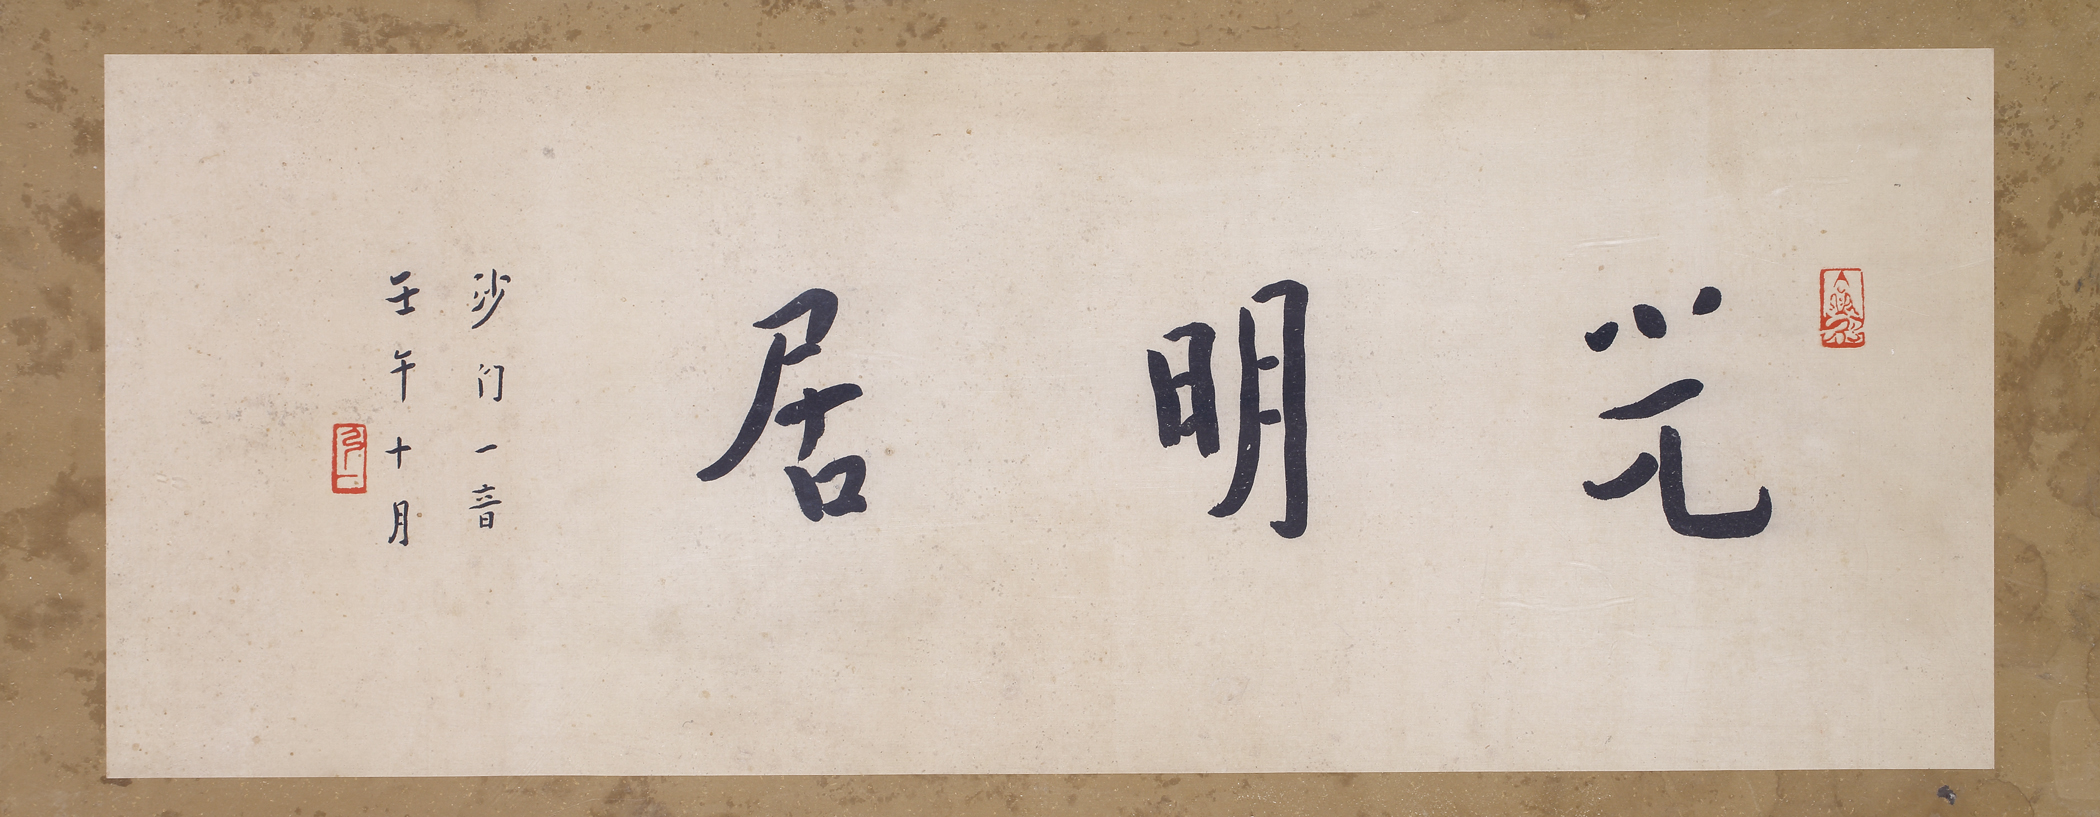 光明居
沙门一音
壬午十月